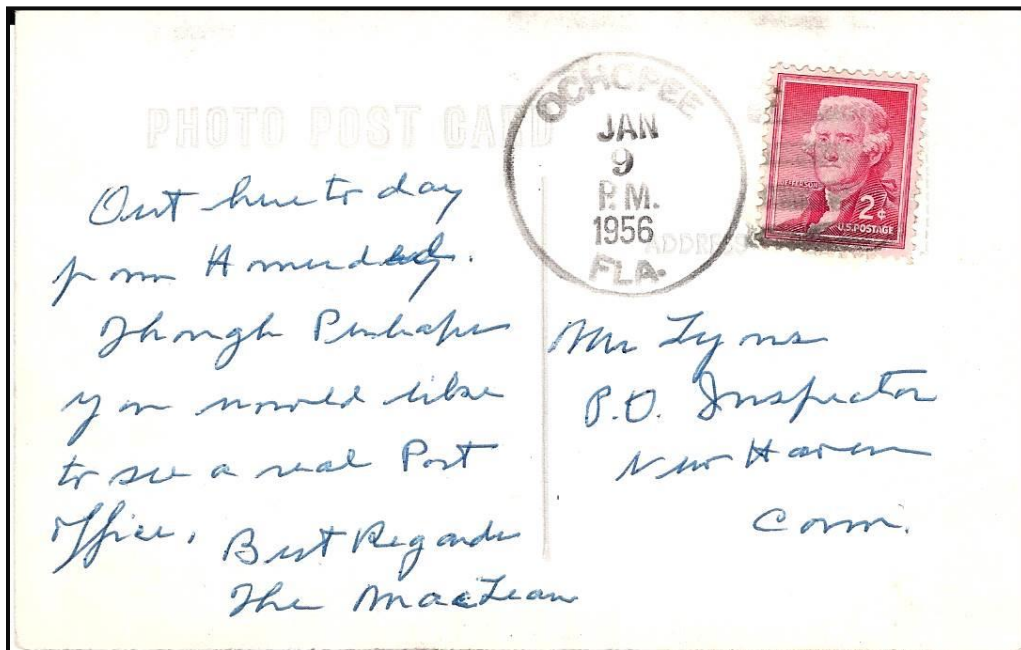 PHOTO POST CARD
OCHOPEE
JAN
9
P.M.
1956
FLA.
JEFFERSON
2¢
U.S. POSTAGE
ADDRESS
Out here to day
from
Though Perhaps
you would like
to see a real Post
Office.
Best Regards
The MacLean
Mr Lyons
P.O. Inspector
New Haven
Conn.